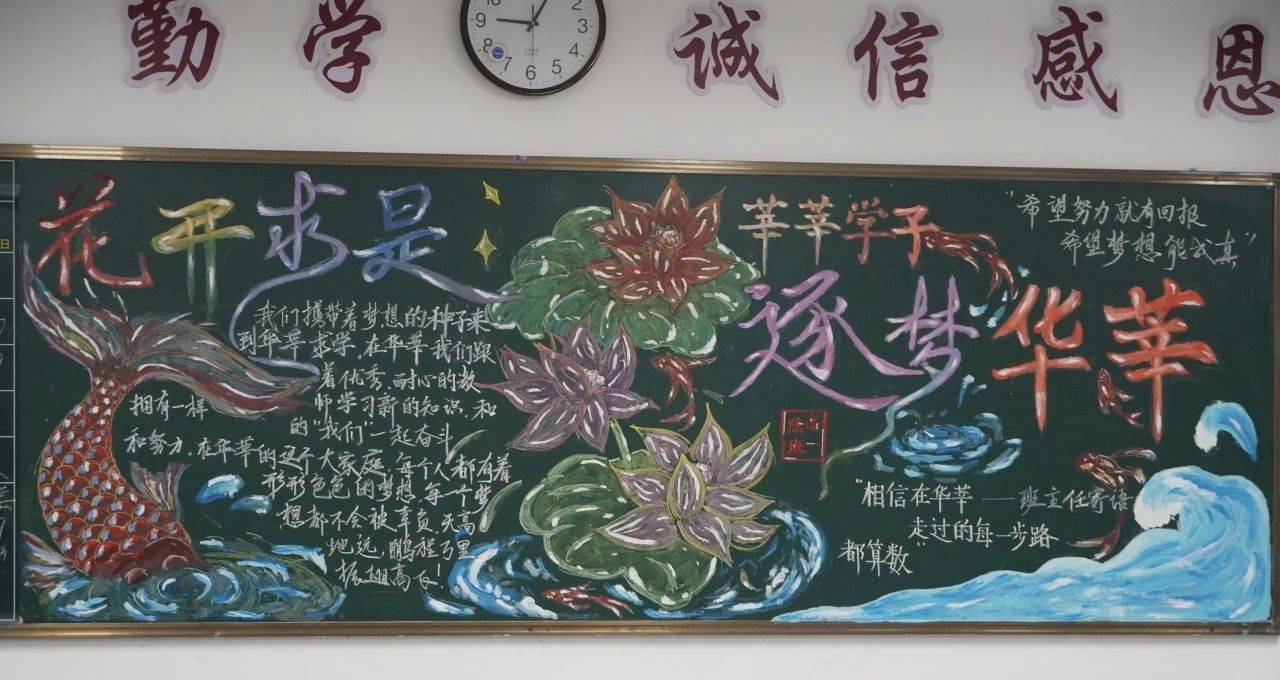 勤学
诚信感恩
花开求是
莘莘学子
逐梦华莘
"希望努力就有回报
希望梦想能成真"
我们携带着梦想的种子来
到华莘求学,在华莘我们跟
着优秀、耐心的教
师学习新的知识,和
拥有一样
的"我们"一起奋斗
和努力,在华莘的这个大家庭,每个人都有着
形形色色的梦想,每一个梦
想都不会被辜负,天高
地远,鹏程万里
振翅高飞!
高一
班
"相信在华莘——班主任寄语
走过的每一步路
都算数"
10
9
8
7
6
5
4
3
2
日